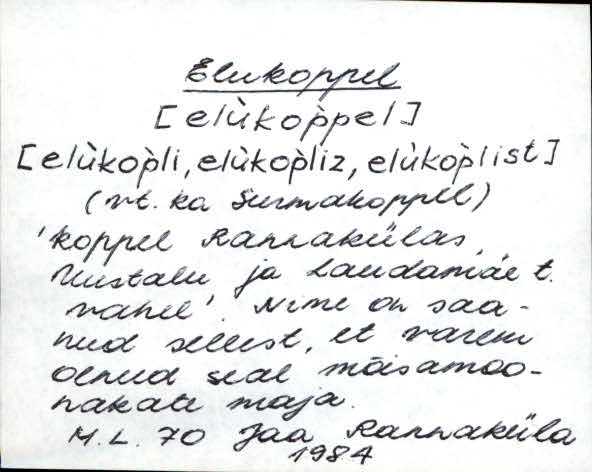 Elukoppel
[elùkop̀pel]
[elùkop̀li, elùkop̀liz, elùkop̀list]
(vt. ka Surmakoppel)
'koppel Rannakülas,
Uustalu ja Laudamäe t.
vahel'. Nimi on saa-
nud sellest, et varem
olnud seal mõisamoo-
nakate maja.
M.L. 70 Jaa Rannaküla
1984